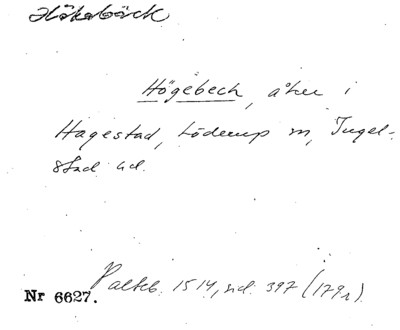 Hökabäck
Högebech, åker i
Hagestad, Löderup sn, Ingel-
stad hd.
Palteb. 1514, sid. 397 (179r)
Nr 6627.